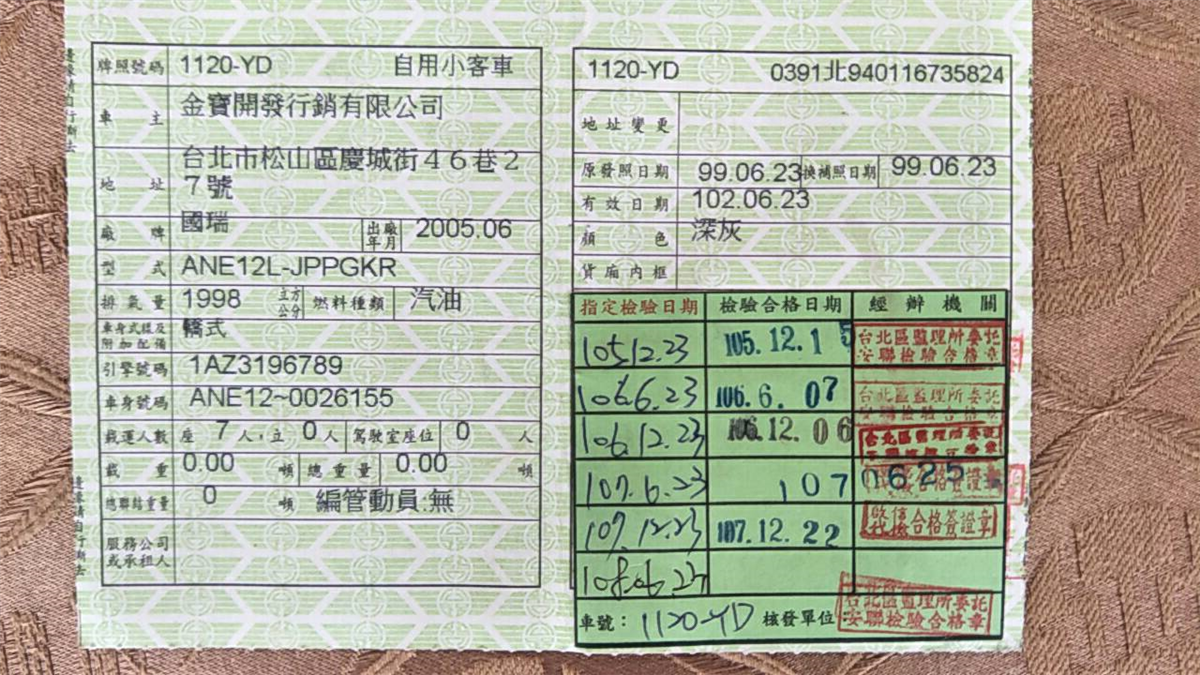 牌照號碼 1120-YD 自用小客車
車主 金寶開發行銷有限公司
地址 台北市松山區慶城街46巷2
7號
廠牌 國瑞 出廠年月 2005.06
型式 ANE12L-JPPGKR
排氣量 1998 立方公分 燃料種類 汽油
車身式樣及附加配備 轎式
引擎號碼 1AZ3196789
車身號碼 ANE12~0026155
載運人數 座 7 人,立 0 人 駕駛室座位 0 人
載重 0.00 噸 總重量 0.00 噸
總聯結重量 0 噸 編管動員:無
服務公司
或承租人
1120-YD 0391北940116735824
地址變更
原發照日期 99.06.23 換補照日期 99.06.23
有效日期 102.06.23
顏色 深灰
貨廂內框
指定檢驗日期 檢驗合格日期 經辦機關
105.12.23 105.12.15 台北區監理所委託
安聯檢驗合格章
106.6.23 106.6.07 台北區監理所委託
安聯檢驗合格章
106.12.23 106.12.06 台北區監理所委託
107.6.23 1070625
107.12.23 107.12.22 合格簽證章
108.06.23
車號: 1120-YD 核發單位: 台北區監理所委託
安聯檢驗合格章
邊緣請自行斷去
邊緣請自行斷去